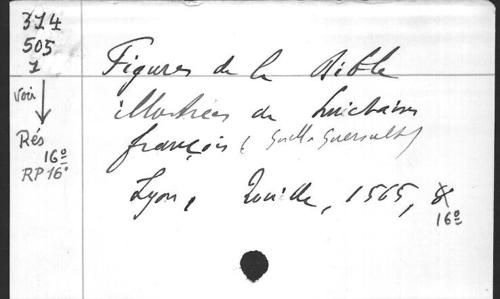 314
505
1
voir
Rés
16º
RP16º
Figures de la Bible
illustrées de huictains
françois ( Guill. Guéroult)
Lyon, Rouille, 1565, 8
16º